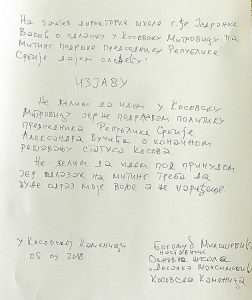 На захтев директорке школе г.ђе Јадранке
Васић о одласку у Косовску Митровицу на
Митинг подршке председнику Републике
Србије дајем следећу:
ИЗЈАВУ
Не желим да идем у Косовску
Митровицу јер не подржавам политику
Председника Републике Србије
Александра Вучића о коначном
решавању статуса Косова.
Не желим да идем под принудом
јер одлазак на митинг треба да
буде израз моје воље а не наређење.
У Косовској Каменици
05 09 2018
Богољуб Милошевић
наставник
Основна школа
„Десанка Максимовић"
Косовска Каменица